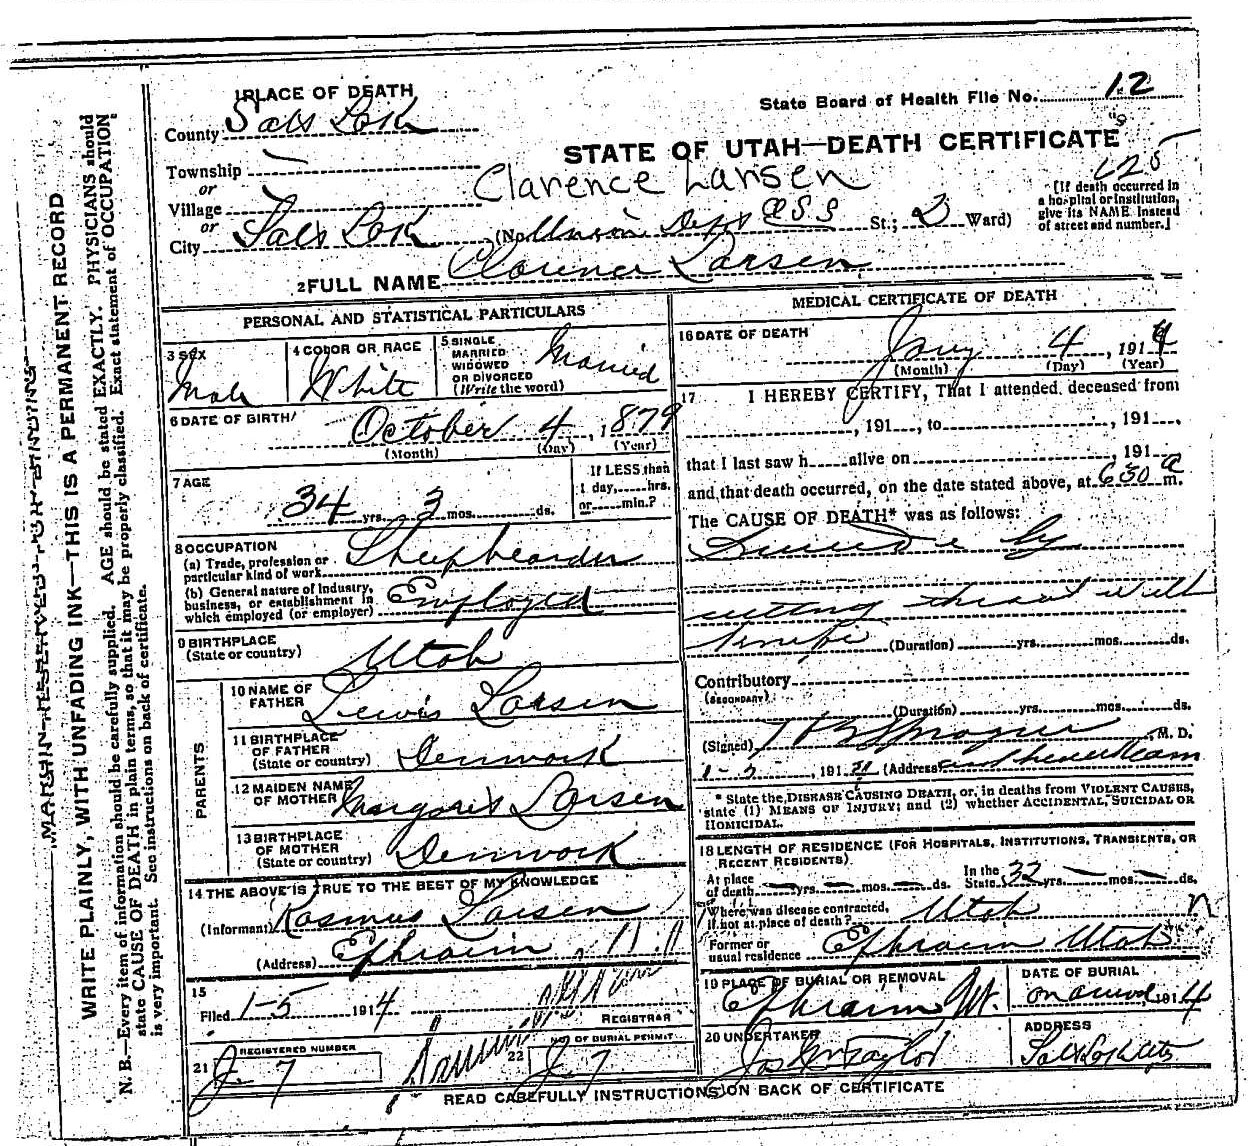 1 PLACE OF DEATH
State Board of Health File No. 12
County Salt Lak
STATE OF UTAH—DEATH CERTIFICATE
Township
or
Clarence Larsen
125
Village
or
City Salt Lak (No. Union Depot OSS St.; 2 Ward)
[If death occurred in
a hospital or institution,
give its NAME instead
of street and number.]
2 FULL NAME Clarence Larsen
PERSONAL AND STATISTICAL PARTICULARS
3 SEX
Male
4 COLOR OR RACE
White
5 SINGLE
MARRIED
WIDOWED
OR DIVORCED
(Write the word)
Married
6 DATE OF BIRTH
October 4, 1879
(Month) (Day) (Year)
7 AGE
34 yrs. 3 mos. ds.
If LESS than
1 day, hrs.
or min.?
8 OCCUPATION
(a) Trade, profession or
particular kind of work
Sheephearder
(b) General nature of industry,
business, or establishment in
which employed (or employer)
Employed
9 BIRTHPLACE
(State or country)
Utah
PARENTS
10 NAME OF
FATHER
Lewis Larsen
11 BIRTHPLACE
OF FATHER
(State or country)
Denmark
12 MAIDEN NAME
OF MOTHER
Margaret Larsen
13 BIRTHPLACE
OF MOTHER
(State or country)
Denmark
14 THE ABOVE IS TRUE TO THE BEST OF MY KNOWLEDGE
(Informant) Rasmus Larsen
(Address) Ephraim
15
Filed 1-5 1914
REGISTRAR
21 REGISTERED NUMBER
J-7
22 NO OF BURIAL PERMIT
J-7
MEDICAL CERTIFICATE OF DEATH
16 DATE OF DEATH
Jany 4, 1914
(Month) (Day) (Year)
17 I HEREBY CERTIFY, That I attended deceased from
, 191 , to , 191 ,
that I last saw h alive on , 191
and that death occurred, on the date stated above, at 630 a m.
The CAUSE OF DEATH* was as follows:
Suicide by
cutting throat with
knife
(Duration) yrs. mos. ds.
Contributory
(SECONDARY)
(Duration) yrs. mos. ds.
(Signed) Sprague M. D.
, 191 (Address)
* State the DISEASE CAUSING DEATH, or, in deaths from VIOLENT CAUSES,
state (1) MEANS OF INJURY; and (2) whether ACCIDENTAL, SUICIDAL OR
HOMICIDAL.
18 LENGTH OF RESIDENCE (FOR HOSPITALS, INSTITUTIONS, TRANSIENTS, OR
RECENT RESIDENTS).
At place
of death — yrs. — mos. — ds.
In the
State 32 yrs. — mos. — ds.
Where was disease contracted,
if not at place of death? Utah
Former or
usual residence Ephraim Utah
19 PLACE OF BURIAL OR REMOVAL
Ephraim Ut.
DATE OF BURIAL
on arrival, 1914
20 UNDERTAKER
Jos Wm Taylor
ADDRESS
Salt Lak City
READ CAREFULLY INSTRUCTIONS ON BACK OF CERTIFICATE
MARGIN RESERVED FOR BINDING
WRITE PLAINLY, WITH UNFADING INK—THIS IS A PERMANENT RECORD
N. B.—Every item of information should be carefully supplied. AGE should be stated EXACTLY. PHYSICIANS should
state CAUSE OF DEATH in plain terms, so that it may be properly classified. Exact statement of OCCUPATION
is very important. See instructions on back of certificate.